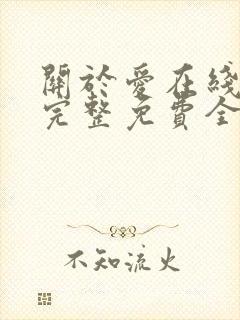 關於愛在綫
完整免費全
不知流火